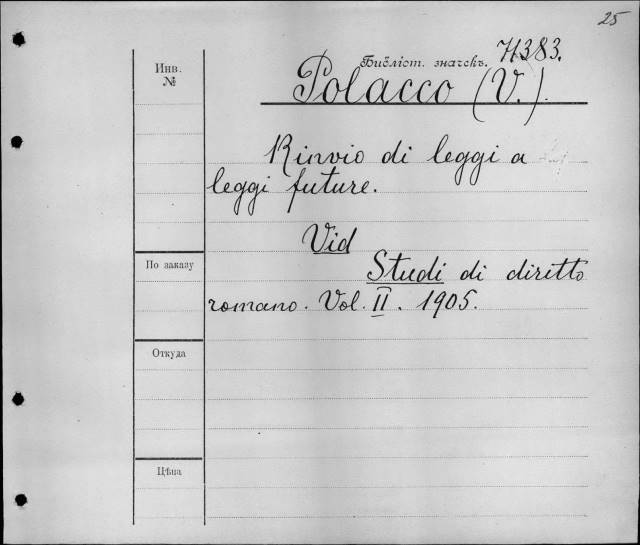 25
Библіот. значекъ. H383.
Инв.
№
Polacco (V.).
Rinvio di leggi a
leggi future.
Vid
По заказу
Studi di diritto
romano. Vol. II. 1905.
Откуда
Цѣна